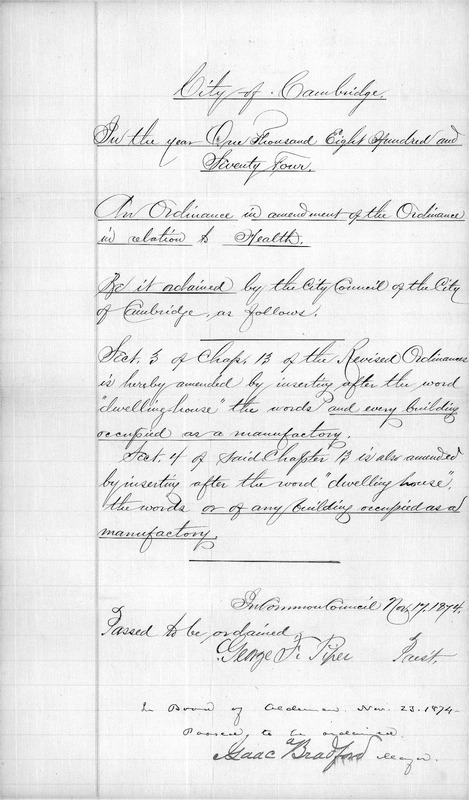 City of Cambridge.
In the year One Thousand Eight Hundred and
Seventy Four.
An Ordinance in amendment of the Ordinance
in relation to Health.
Be it ordained by the City Council of the City
of Cambridge, as follows.
Sect. 3 of Chap. 13 of the Revised Ordinances
is hereby amended by inserting after the word
"dwelling house" the words and every building
occupied as a manufactory.
Sect. 4 of said Chapter 13 is also amended
by inserting after the word "dwelling house",
the words or of any building occupied as a
manufactory.
In Common Council Nov. 17, 1874.
Passed to be ordained
George F. Piper Prest.
In Board of Aldermen. Nov. 23. 1874-
Passed, to be ordained.
Isaac Bradford Mayor.